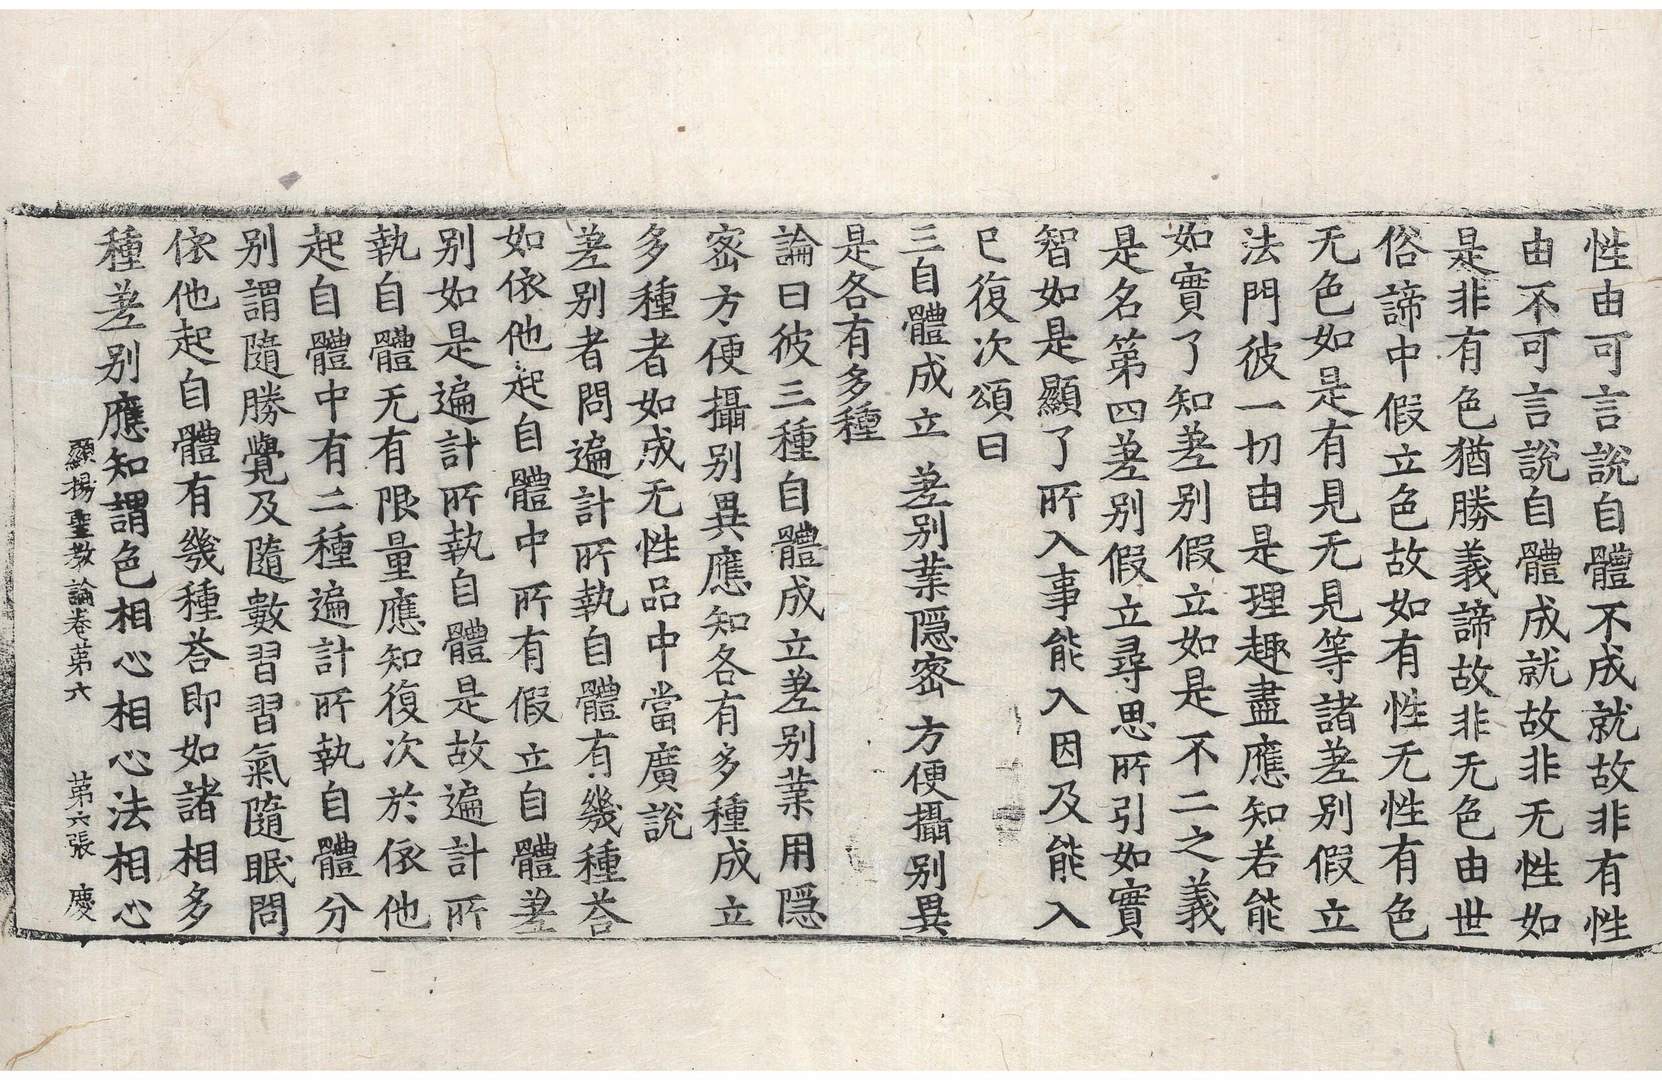 性由可言說自體不成就故非有性
由不可言說自體成就故非无性如
是非有色猶勝義諦故非无色由世
俗諦中假立色故如有性无性有色
无色如是有見无見等諸差别假立
法門彼一切由是理趣盡應知若能
如實了知差别假立如是不二之義
是名第四差别假立尋思所引如實
智如是顯了所入事能入因及能入
已復次頌曰
三自體成立 差别業隱密 方便攝别異
是各有多種
論曰彼三種自體成立差别業用隱
密方便攝别異應知各有多種成立
多種者如成无性品中當廣說
差别者問遍計所執自體有幾種荅
如依他起自體中所有假立自體差
别如是遍計所執自體是故遍計所
執自體无有限量應知復次於依他
起自體中有二種遍計所執自體分
别謂隨勝覺及隨數習習氣隨眠問
依他起自體有幾種荅即如諸相多
種差别應知謂色相心相心法相心
顯揚聖教論卷第六 第六張 慶